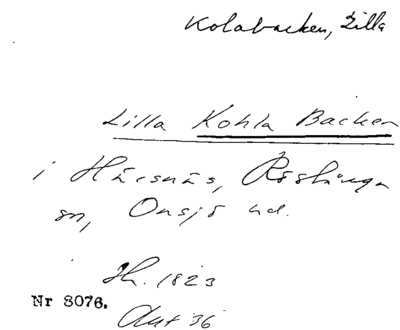 Kolabacken, Lilla
Lilla Kohla Backen
i Härsnäs, Röstånga
sn, Onsjö hd.
Sk. 1823
Nr 8076.
Akt 36